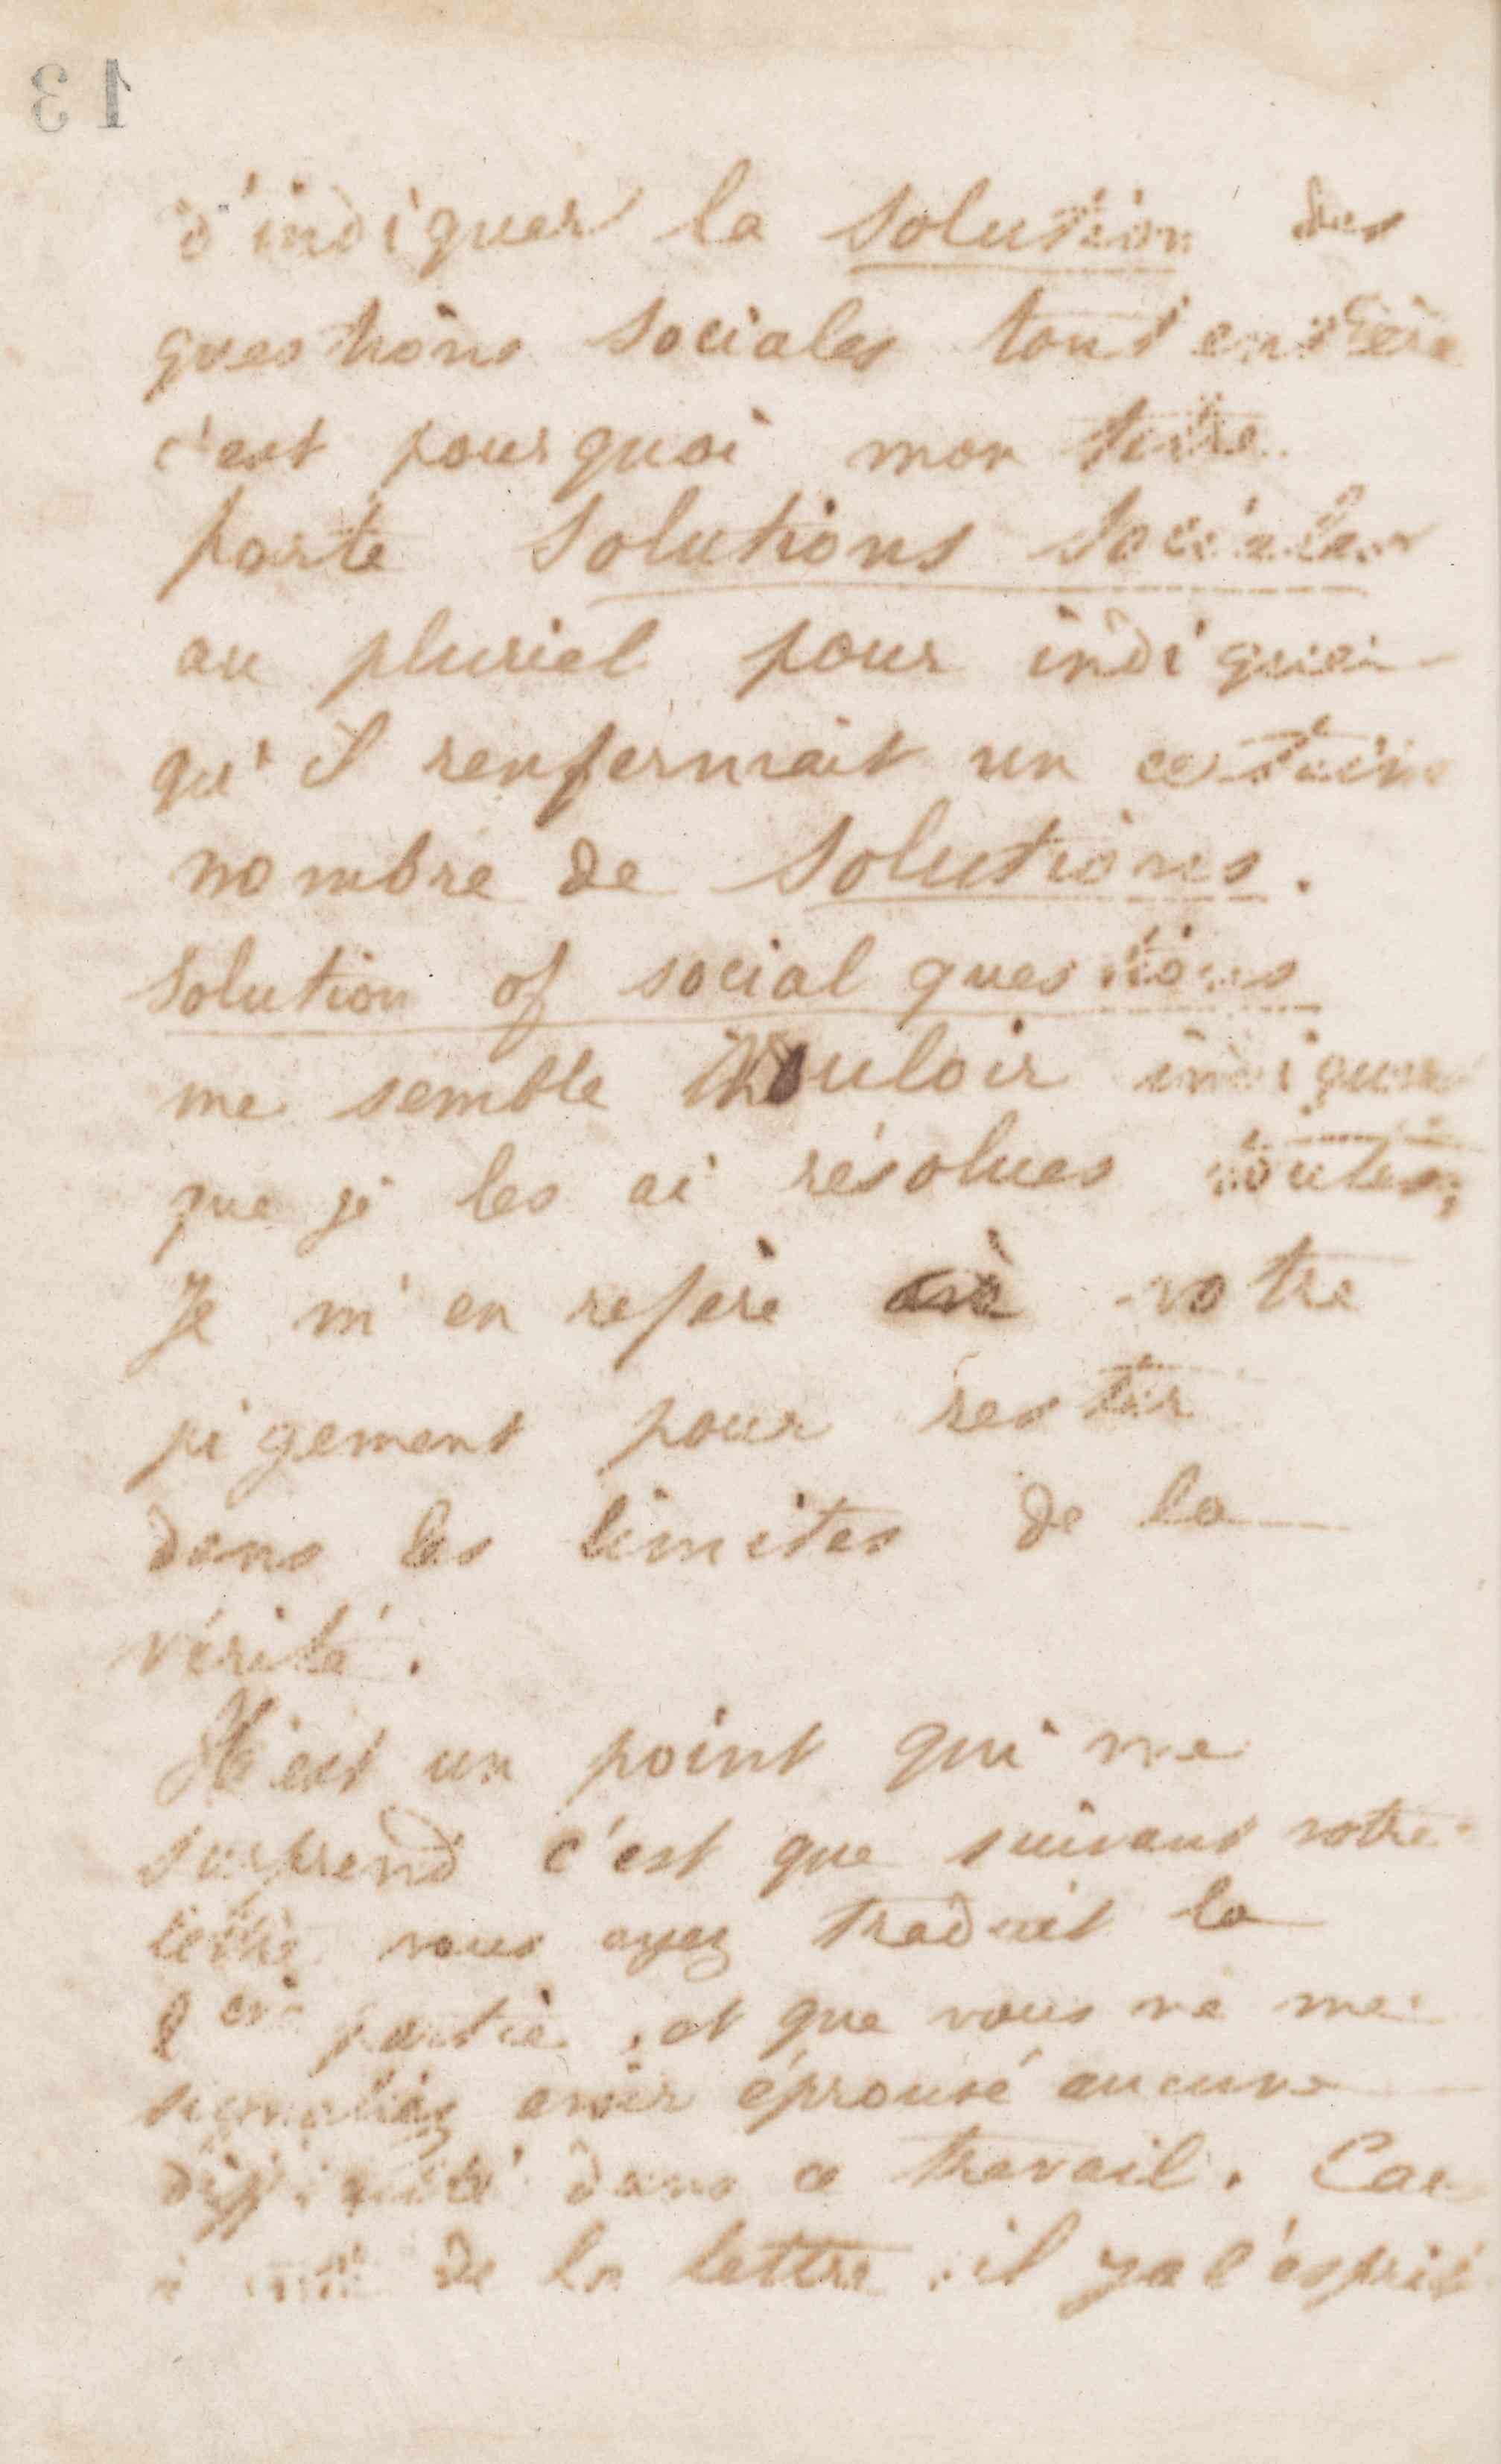 13
d'indiquer la solution des
questions sociales tout entière
c'est pourquoi mon titre
porte Solutions Sociales
au pluriel pour indiquer
qu'il renfermait un certain
nombre de Solutions.
Solution of social questions
me semble vouloir indiquer
que je les ai résolues toutes;
Je m'en refère à votre
jugement pour rester
dans les limites de la
vérité.
Il est un point qui me
surprend c'est que suivant votre
lettre vous ayez traduit la
partie, et que vous ne me
signaliez avoir éprouvé aucune
difficulté dans ce travail. Car
à côté de la lettre il y a l'esprit